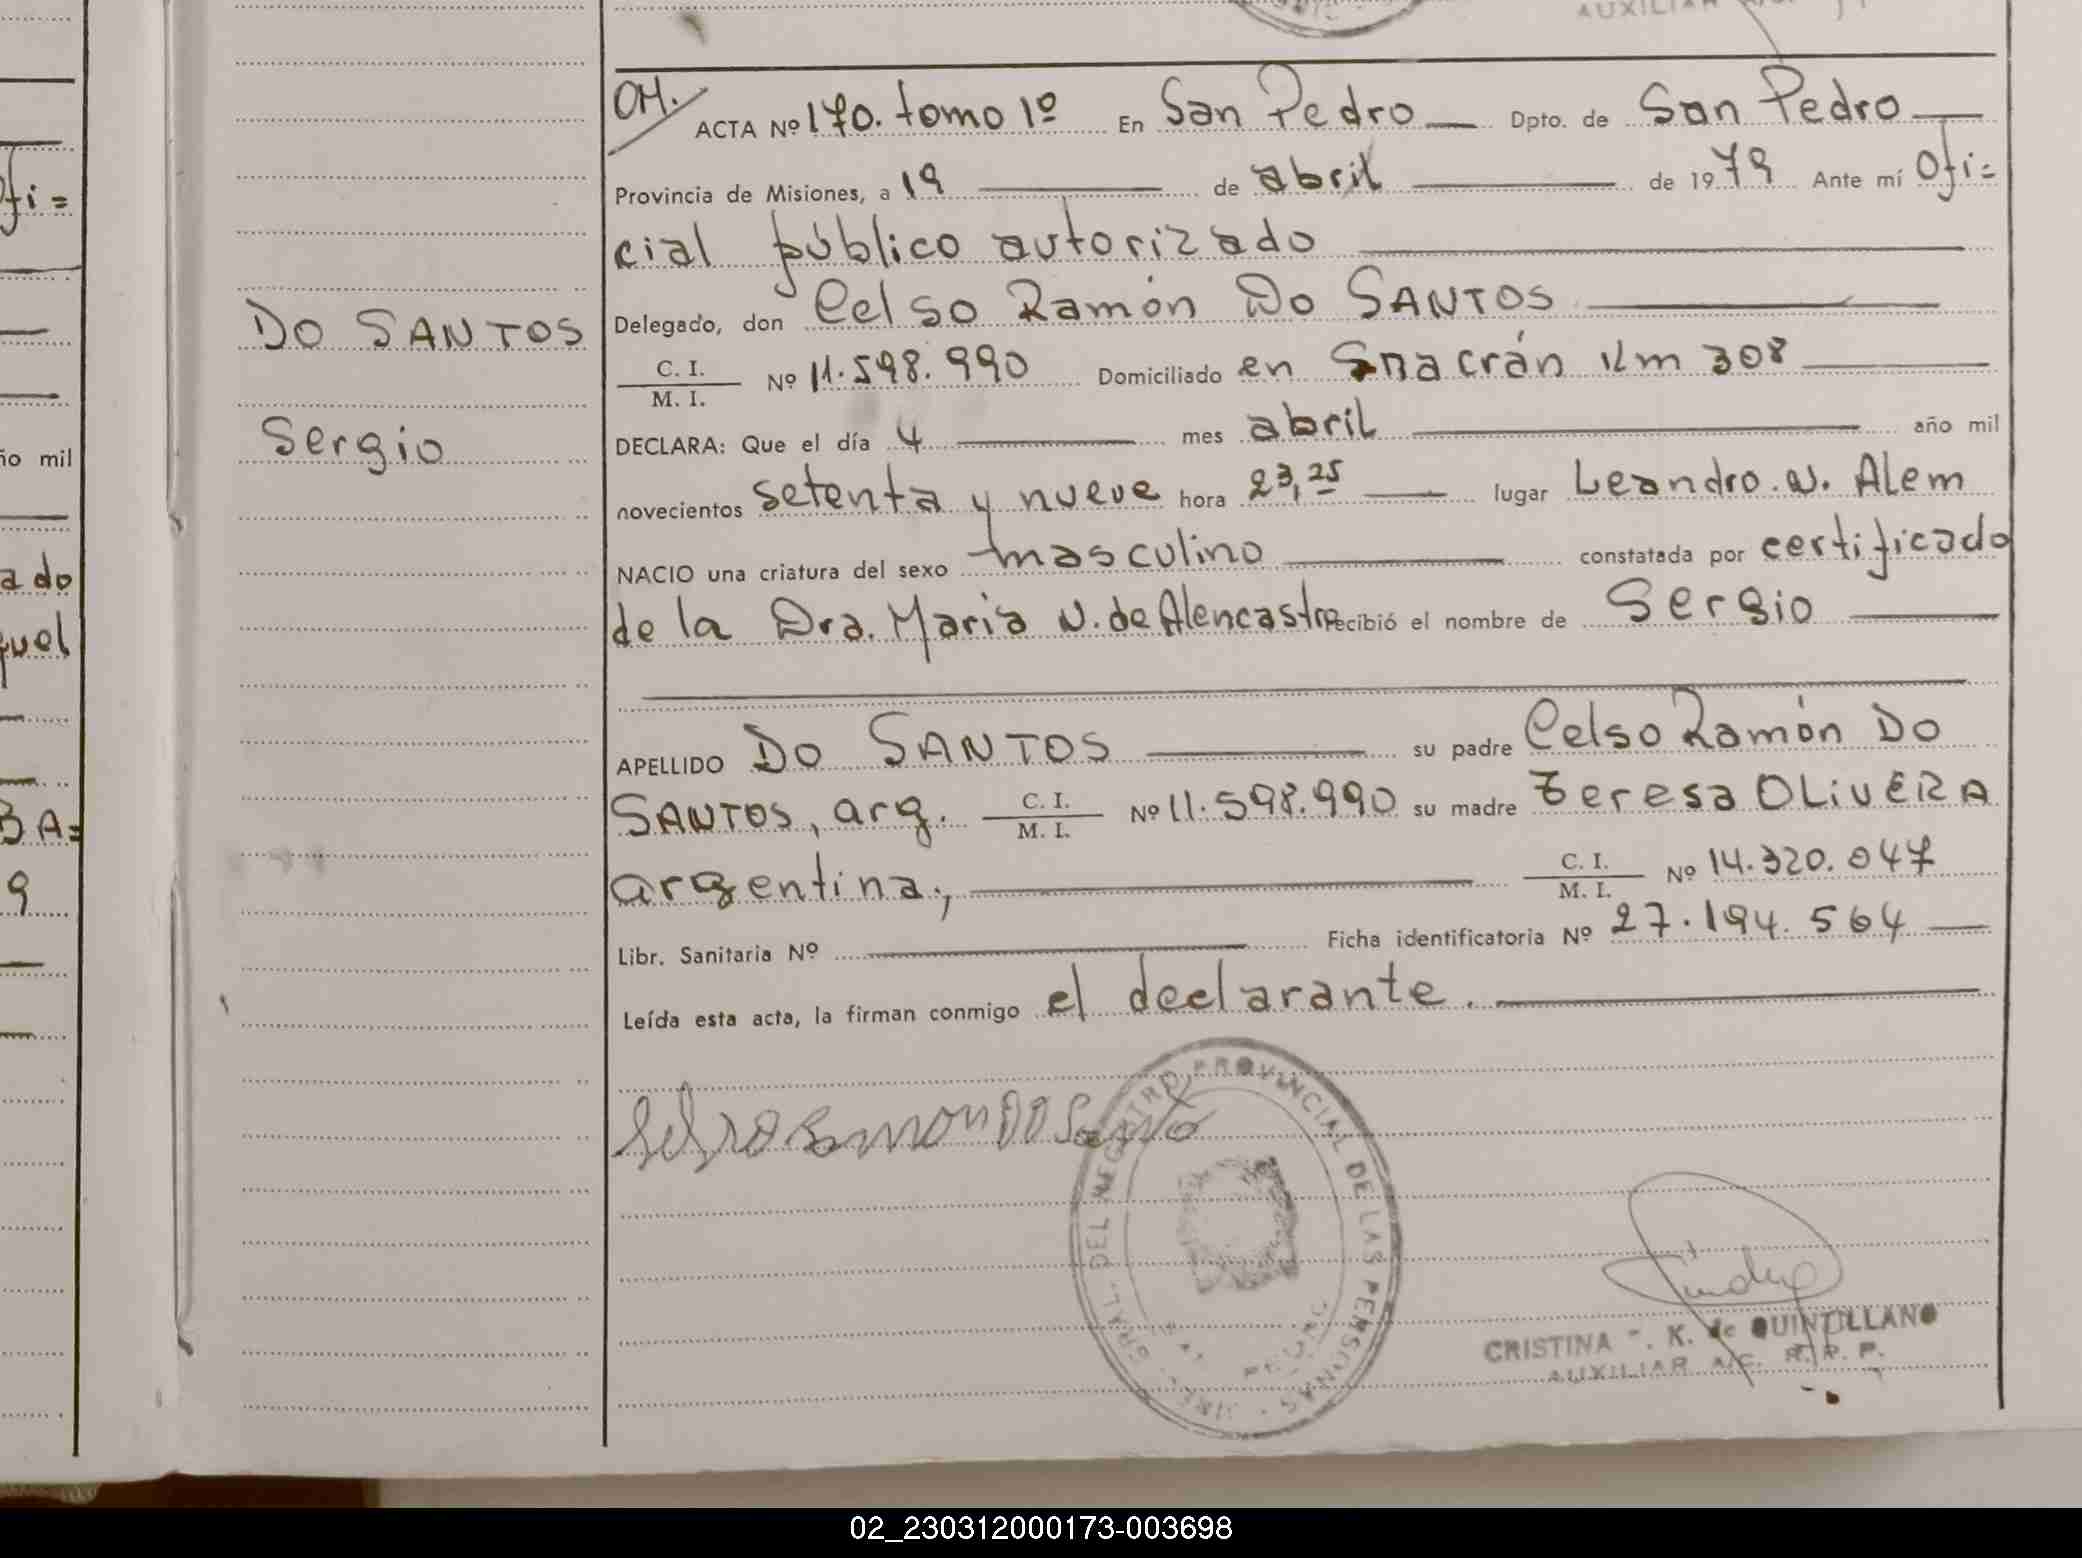 AUXILIAR
OM. ACTA Nº 170. tomo 1º En San Pedro Dpto. de San Pedro
Provincia de Misiones, a 19 de abril de 1979 Ante mí Ofi=
cial público autorizado
Delegado, don Celso Ramón Do SANTOS
C. I.
M. I. Nº 11.598.990 Domiciliado en Gnacrán Km 308
DECLARA: Que el día 4 mes abril año mil
novecientos setenta y nueve hora 23,25 lugar Leandro. N. Alem
NACIO una criatura del sexo masculino constatada por certificado
de la Dra. María N. de Alencastre recibió el nombre de Sergio
APELLIDO Do SANTOS su padre Celso Ramón Do
SANTOS, arg. C. I. M. I. Nº 11.598.990 su madre Teresa OLiVERA
argentina, C. I. M. I. Nº 14.320.047
Libr. Sanitaria Nº Ficha identificatoria Nº 27.194.564
Leída esta acta, la firman conmigo el declarante.
DO SANTOS
Sergio
fi=
ño mil
ado
quel
BA=
9
DEL REGISTRO PROVINCIAL DE LAS PERSONAS
CRISTINA K. de QUINTILLANO
AUXILIAR A/C. R. P. P.
02_230312000173-003698